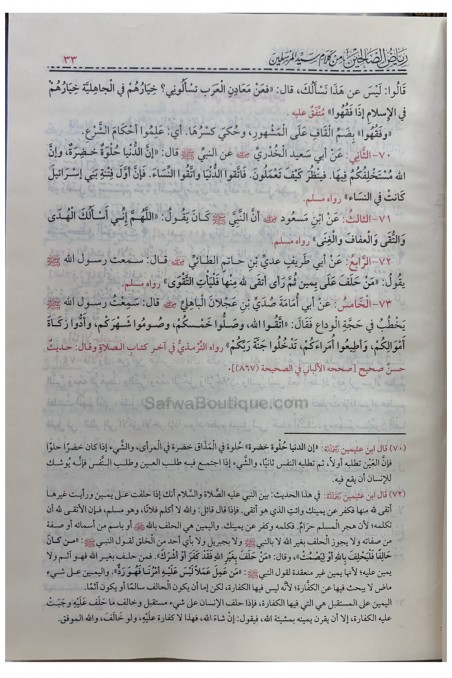 رياض الصالحين من كلام سيد المرسلين
٣٣
قَالُوا: لَيْسَ عن هَذَا نَسأَلُكَ، قال: «فَعَنْ مَعَادِنِ العَرَب تَسْأَلُونِي؟ خِيَارُهُمْ في الجاهِليَّةِ خِيَارُهُمْ
في الإسلامِ إذَا فَقُهُوا» مُتَّفَقٌ عليه
«وفَقُهُوا» بِضَمِّ القَافِ عَلَى المَشْهورِ، وَحُكِيَ كَسْرُهَا. أي: عَلِمُوا أحْكَامَ الشَّرْعِ.
٧٠- الثَّاني: عَنْ أبي سَعيدٍ الخُدْرِيِّ عن النبيِّ ﷺ قال: «إنَّ الدُّنْيا حُلْوَةٌ خَضِرَةٌ، وإنَّ
الله مُسْتَخْلِفُكُمْ فِيهَا. فينْظُر كَيْفَ تَعْمَلُونَ. فَاتَّقُوا الدُّنْيَا واتَّقُوا النِّسَاءِ. فَإنَّ أَوَّلَ فِتْنَةِ بَنِي إسْرَائيلَ
كَانَتْ في النسَاء» رواه مسلم.
٧١- الثالثُ: عَنْ ابْنِ مَسْعودٍ أنَّ النَّبيَّ ﷺ كَانَ يَقُولُ: «اللَّهُمَّ إنِّي أَسْأَلُكَ الْهُدَى
وَالتُّقَى وَالْعفافَ والْغِنَى» رواه مسلم.
٧٢- الرابعُ: عَنْ أبي طَريفٍ عدِيِّ بْنِ حاتمٍ الطائِيِّ قال: سمعت رسول الله ﷺ
يقُولُ: «مَنْ حَلَفَ عَلَى يمين ثُمَّ رَأى أتقَى لله مِنْها فَلْيَأتِ التَّقْوَى» رواه مسلم.
٧٣- الْخَامِسُ: عنْ أبي أُمَامَةَ صُدَيِّ بْنِ عَجْلانَ الْبَاهِلِيِّ قال: سَمِعْتُ رسول الله ﷺ
يَخْطُبُ في حَجَّةِ الْوداع فَقَالَ: «اتَّقُوا الله، وصَلُّوا خَمْسكُمْ، وصُوموا شَهْرَكمْ، وأَدُّوا زكَاةَ
أَمْوَالِكُمْ، وَأَطِيعُوا أُمَرَاءَكُمْ، تَدْخُلُوا جَنَّةَ رَبِّكُمْ» رواه التِّرْمذيُّ في آخر كتاب الصلاةِ وقال: حديثٌ
حسنٌ صحيح [صححه الألباني في الصحيحة (٨٦٧)].
SafwaBoutique.com
(٧٠) قال ابن عثيمين: «إن الدنيا حُلوة خضرة» حُلوة في المَذَاق خضرة في المرأى، والشَّيء إذا كان خضرًا حلوًا
فإنَّ العَيْن تطلبه أولاً، ثم تطلبه النفس ثانيًا، والشيء إذا اجتمع فيه طلب العين وطلب النَّفس فإنَّه يُوشك
للإنسان أن يقع فيه.
(٧٢) قال ابن عثيمين: في هذا الحديث: بين النبي عليه الصَّلاة والسَّلام أنك إذا حلفت على يمين ورأيت غيرها
أتقى لله منها فكفر عن يمينك وائتِ الذي هو أتقى. فإذا قال قائل: والله لا أكلم فلانًا، وهو مسلم، فإن الأتقى لله أن
تكلمه؛ لأن هجر المسلم حرامٌ. فكلمه وكفر عن يمينك. واليمين هي الحلف بالله أو باسم من أسمائه أو صفة
من صفاته ولا يجوز الحلف بغير الله لا بالنبي ﷺ ولا بجبريل ولا بأي أحد من الخلق لقول النبي ﷺ: «مَن كَانَ
حَالِفًا فَلْيَحْلِفْ بِاللهِ أَوْ لِيَصْمُتْ»، وقال: «مَنْ حَلَفَ بِغَيْرِ اللهِ فَقَدْ كَفَرَ أَوْ أَشْرَكَ». فمن حلف بغير الله فهو آثم ولا
يمين عليه؛ لأنها يمين غير منعقدة لقول النبي ﷺ: «مَن عَمِلَ عَمَلاً لَيْسَ عَلَيْهِ أَمْرُنَا فَهُوَ رَدٌّ». واليمين على شيء
ماض لا يبحث فيها عن الكفارة؛ لأنه ليس فيها الكفارة، لكن إما أن يكون الحالف سالمًا أو يكون آثمًا.
اليمين على المستقبل هي التي فيها الكفارة، فإذا حلف الإنسان على شيء مستقبل وخالف ما حَلَفَ عَلَيْهِ وَجَبَتْ
عليه الكفارة، إلا أن يقرن يمينه بمشيئة الله، فيقول: إنْ شَاءَ الله، فهذا لا كفارة عَلَيْهِ، ولو خالَفَ، والله الموفق.